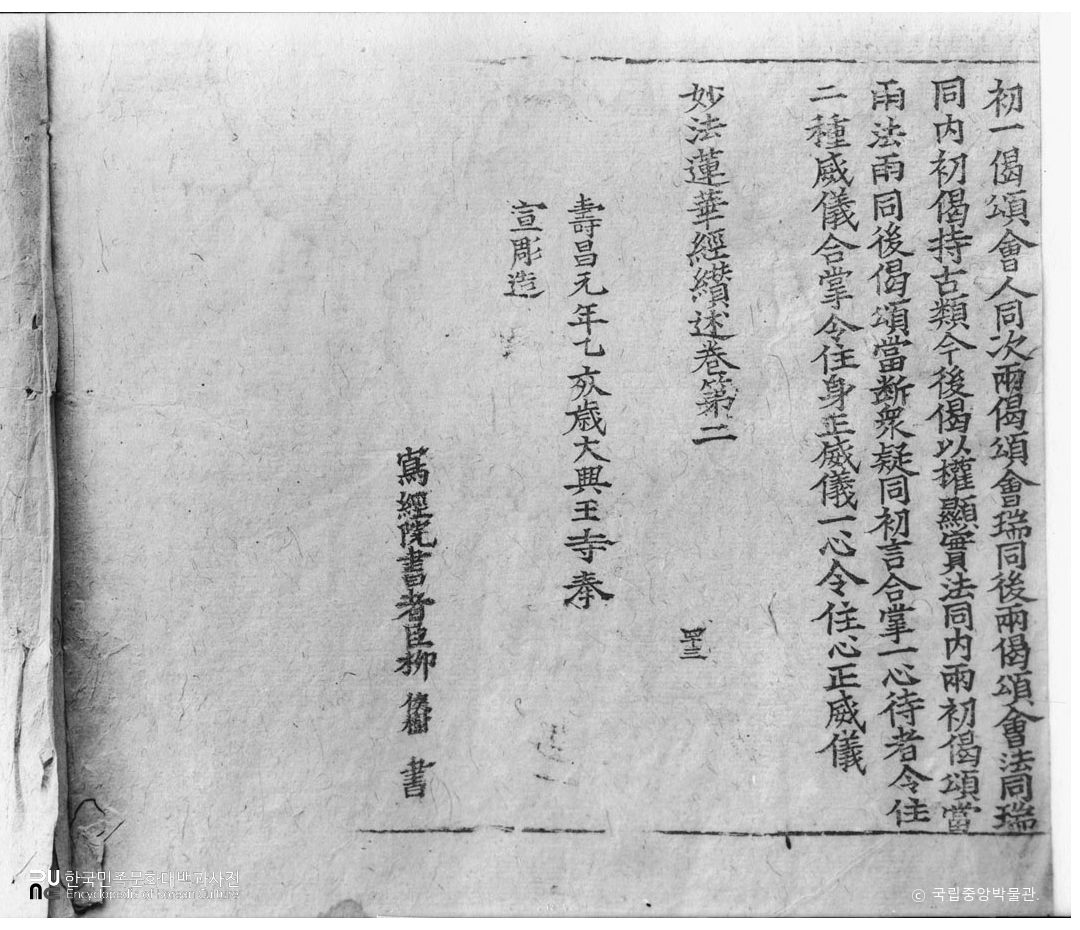 初一偈頌會人同次兩偈頌會瑞同後兩偈頌會法同瑞
同內初偈持古類今後偈以權顯實法同內兩初偈頌當
雨法雨同後偈頌當斷衆疑同初言合掌一心待者令住
二種威儀合掌令住身正威儀一心令住心正威儀
妙法蓮華經纉述卷第二
四十三
壽昌元年乙亥歲大興王寺奉
宣彫造
寫經院書者臣柳 侯樹 書
한국민족문화대백과사전
Encyclopedia of Korean Culture
© 국립중앙박물관.